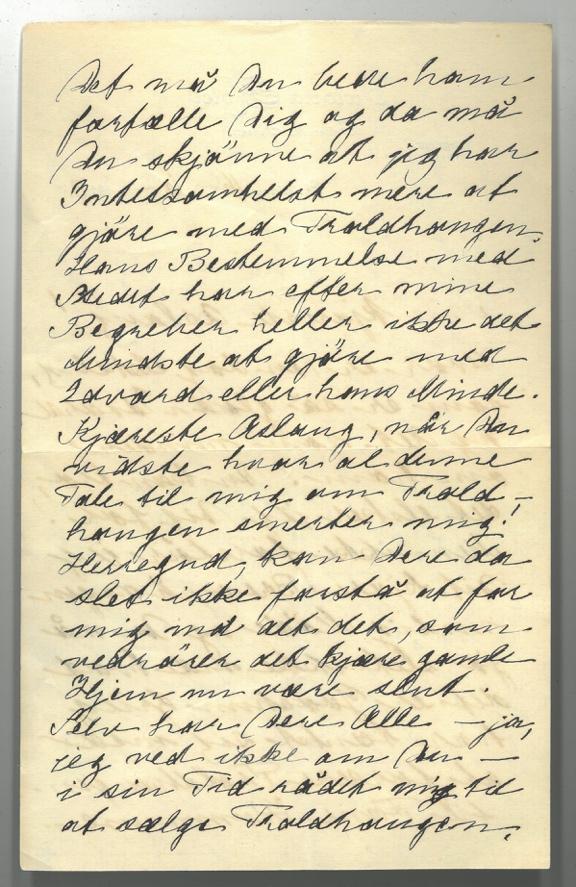 Det må Du bede ham
fortælle Dig og da må
Du skjönne at jeg har
Intetsomhelst mere at
gjöre med Troldhaugen.
Hans Bestemmelse med
Stedet har efter mine
Begreber heller ikke det
Mindste at gjöre med
Edvard eller hans Minde.
Kjæreste Aslaug, når Du
vidste hvor al denne
Tale til mig om Trold-
haugen smerter mig!
Herregud, kan Dere da
slet ikke forstå at for
mig må alt det, som
vedrörer det kjære gamle
Hjem nu være slut.
Selv har Dere Alle – ja,
jeg ved ikke om Du –
i sin Tid rådet mig til
at sælge Troldhaugen,